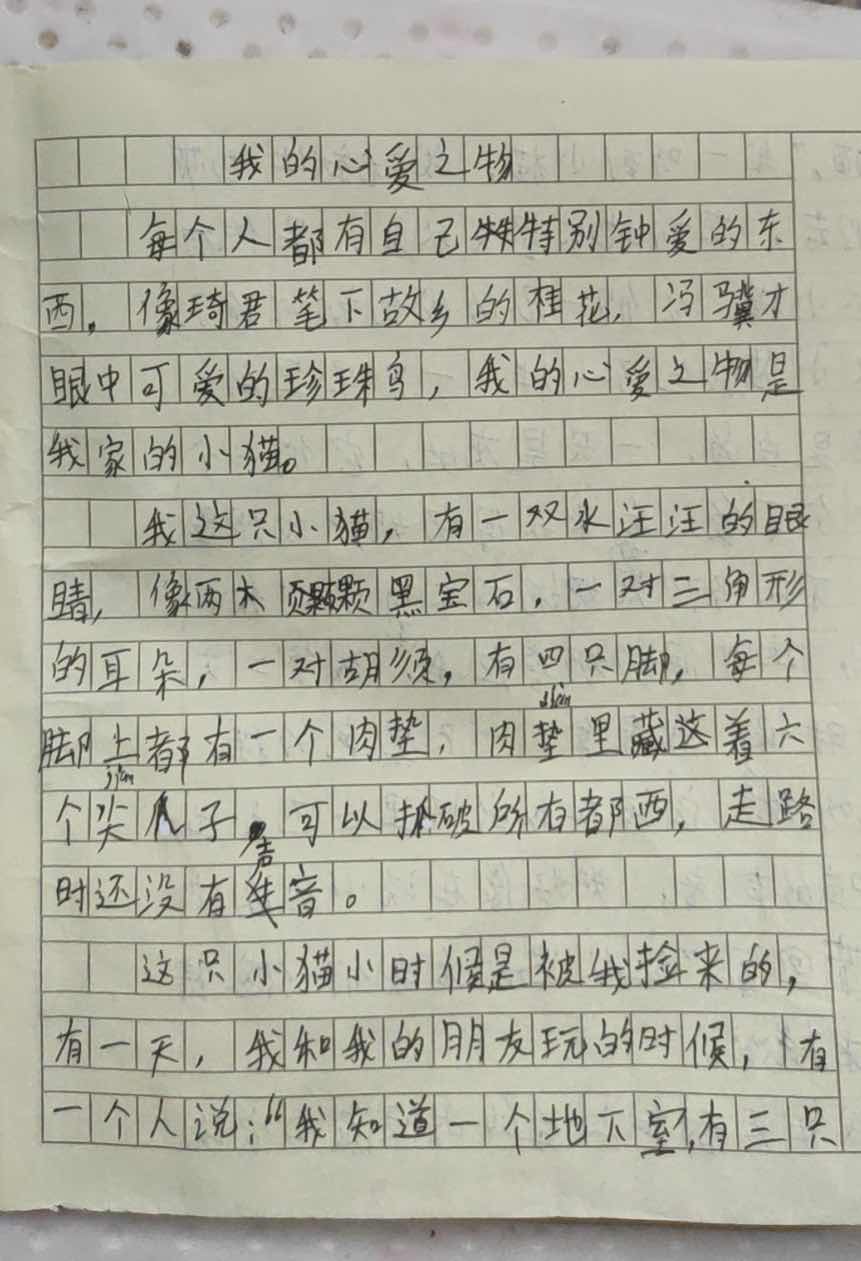 我的心爱之物
每个人都有自己特别钟爱的东
西。像琦君笔下故乡的桂花，冯骥才
眼中可爱的珍珠鸟，我的心爱之物是
我家的小猫。
我这只小猫，有一双水汪汪的眼
睛，像两颗黑宝石，一对三角形
的耳朵，一对胡须，有四只脚，每个
脚上都有一个肉垫，肉垫里藏这着六
个尖爪子，可以抓破所有都西，走路
时还没有声音。
这只小猫小时候是被我捡来的，
有一天，我和我的朋友玩的时候，有
一个人说：“我知道一个地下室，有三只